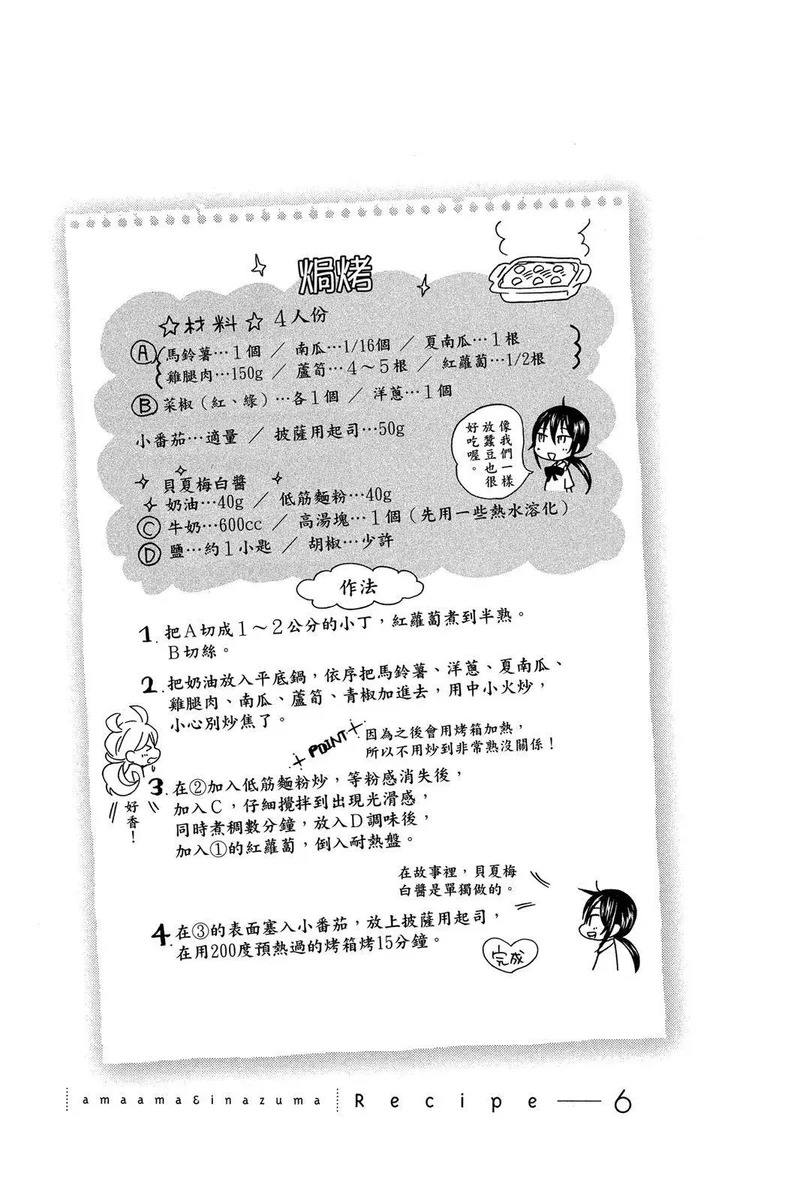 焗烤
☆材料☆ 4人份
Ⓐ 馬鈴薯…1個 / 南瓜…1/16個 / 夏南瓜…1根
雞腿肉…150g / 蘆筍…4～5根 / 紅蘿蔔…1/2根
Ⓑ 菜椒（紅、綠）…各1個 / 洋蔥…1個
小番茄…適量 / 披薩用起司…50g
像我們一樣
放蠶豆也很
好吃喔。
貝夏梅白醬
奶油…40g / 低筋麵粉…40g
Ⓒ 牛奶…600cc / 高湯塊…1個（先用一些熱水溶化）
Ⓓ 鹽…約1小匙 / 胡椒…少許
作法
1. 把A切成1～2公分的小丁，紅蘿蔔煮到半熟。
B切絲。
2. 把奶油放入平底鍋，依序把馬鈴薯、洋蔥、夏南瓜、
雞腿肉、南瓜、蘆筍、青椒加進去，用中小火炒，
小心別炒焦了。
POINT
因為之後會用烤箱加熱，
所以不用炒到非常熟沒關係！
好香！
3. 在②加入低筋麵粉炒，等粉感消失後，
加入C，仔細攪拌到出現光滑感，
同時煮稠數分鐘，放入D調味後，
加入①的紅蘿蔔，倒入耐熱盤。
在故事裡，貝夏梅
白醬是單獨做的。
4. 在③的表面塞入小番茄，放上披薩用起司，
在用200度預熱過的烤箱烤15分鐘。
完成
amaama&inazuma Recipe — 6